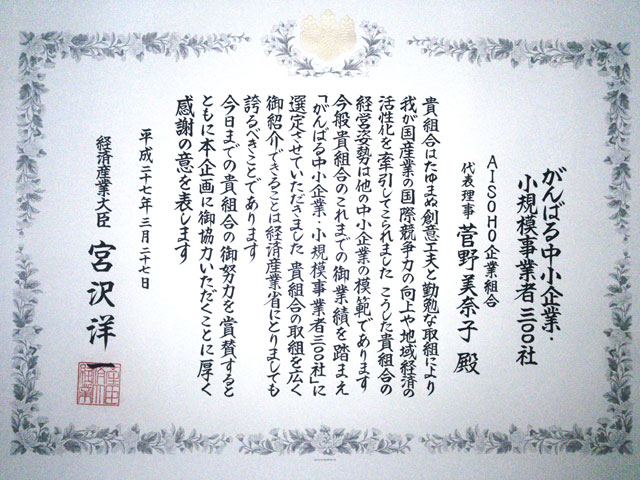 がんばる中小企業・
小規模事業者三〇〇社
AISOHO企業組合
代表理事 菅野美奈子 殿
貴組合はたゆまぬ創意工夫と勤勉な取組により
我が国産業の国際競争力の向上や地域経済の
活性化を牽引してこられました こうした貴組合の
経営姿勢は他の中小企業の模範であります
今般貴組合のこれまでの御業績を踏まえ
「がんばる中小企業・小規模事業者三〇〇社」に
選定させていただきました 貴組合の取組を広く
御紹介できることは経済産業省にとりましても
誇るべきことであります
今日までの貴組合の御努力を賞賛すると
ともに本企画に御協力いただくことに厚く
感謝の意を表します
平成二十七年三月二十七日
経済産業大臣 宮沢洋一